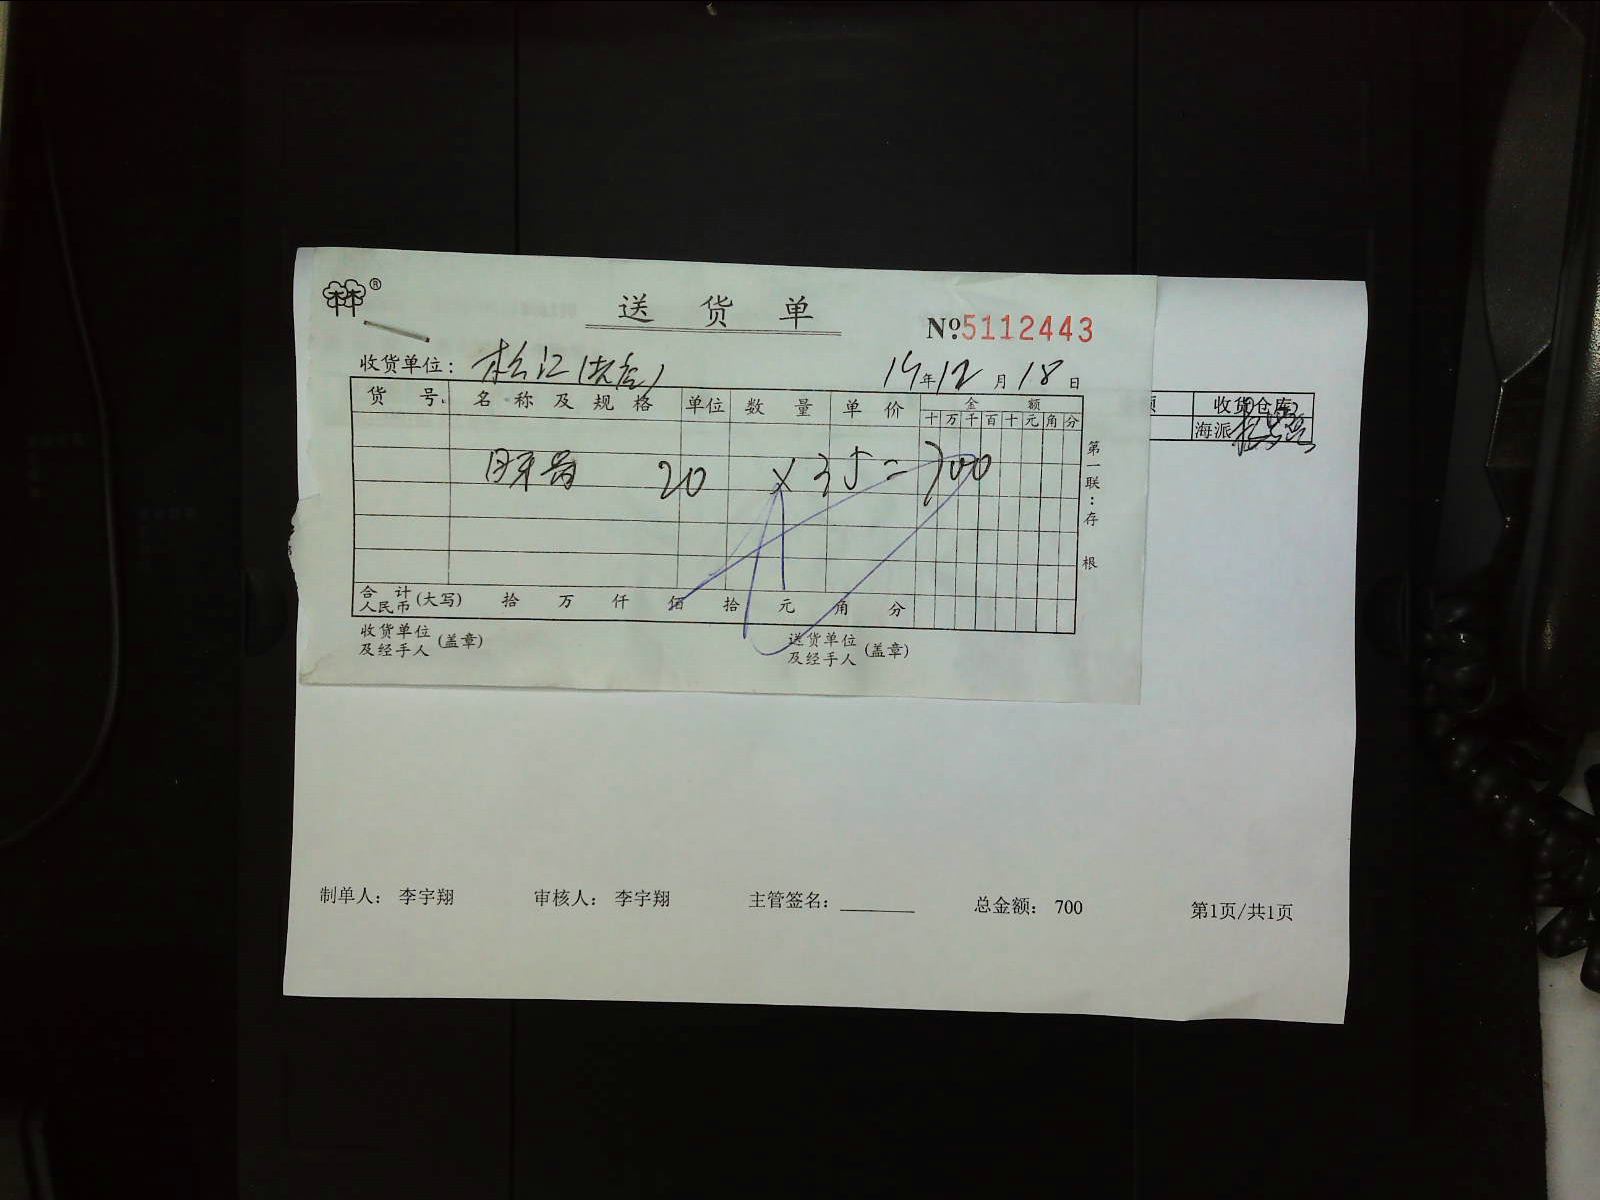 ®
送货单
№5112443
收货单位: 松江
14年12月18日
货号 名称及规格 单位 数量 单价 金额
十万千百十元角分
20 × 35 = 700
第一联:存根
合计人民币(大写) 拾 万 仟 佰 拾 元 角 分
收货单位及经手人(盖章)
送货单位及经手人(盖章)
额 收货仓库
海派
制单人: 李宇翔 审核人: 李宇翔 主管签名: 总金额: 700 第1页/共1页